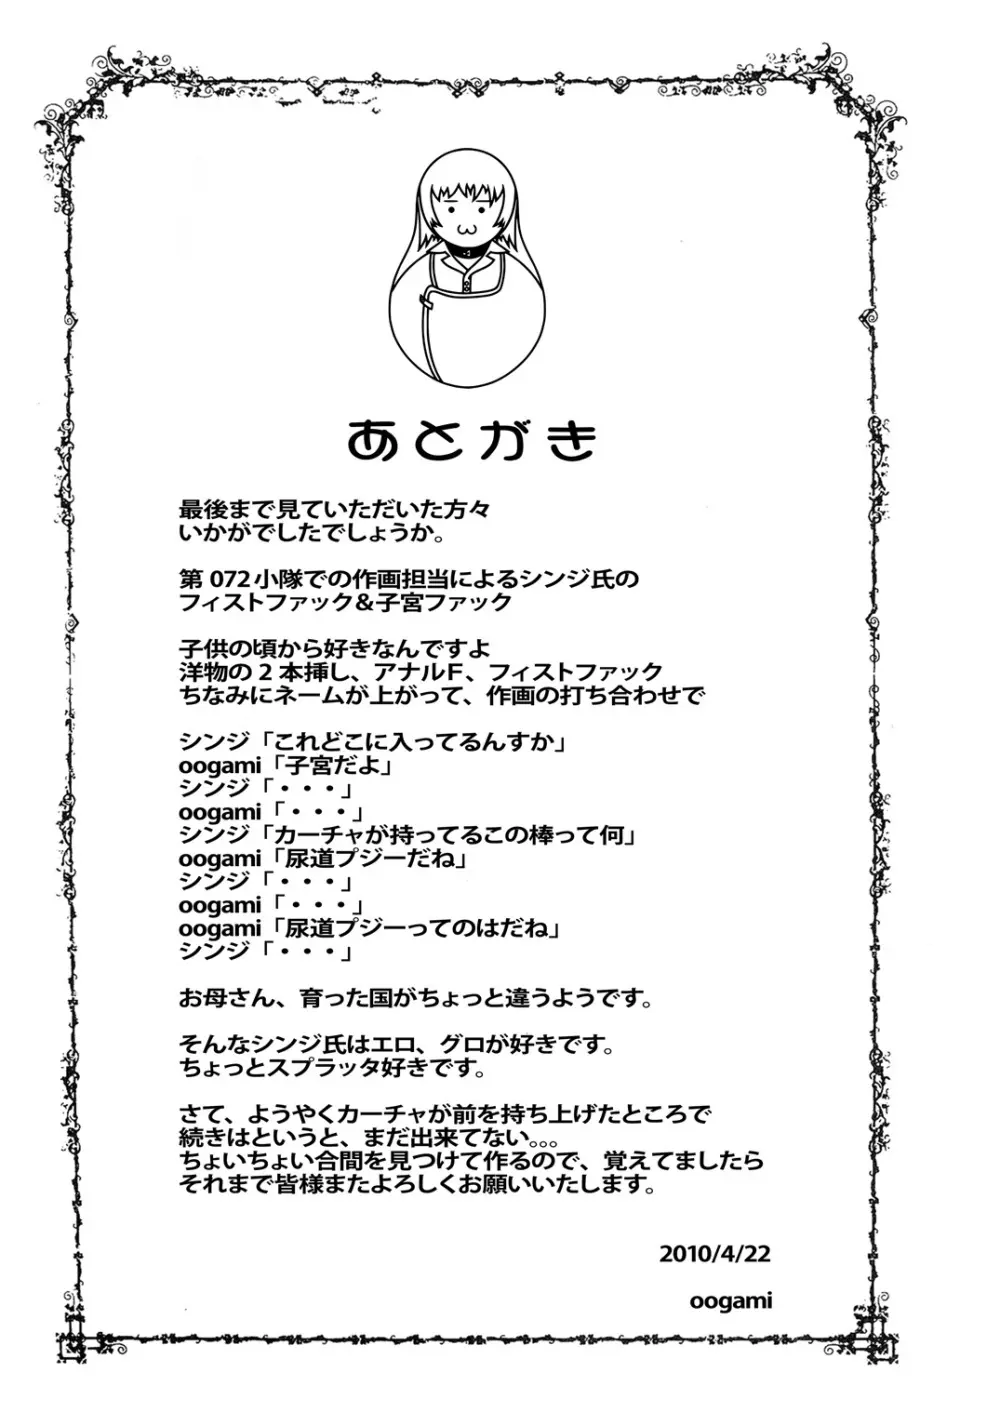 あとがき
最後まで見ていただいた方々
いかがでしたでしょうか。
第 072 小隊での作画担当によるシンジ氏の
フィストファック＆子宮ファック
子供の頃から好きなんですよ
洋物の 2 本挿し、アナルF、フィストファック
ちなみにネームが上がって、作画の打ち合わせで
シンジ「これどこに入ってるんすか」
oogami「子宮だよ」
シンジ「・・・」
oogami「・・・」
シンジ「カーチャが持ってるこの棒って何」
oogami「尿道プジーだね」
シンジ「・・・」
oogami「・・・」
oogami「尿道プジーってのはだね」
シンジ「・・・」
お母さん、育った国がちょっと違うようです。
そんなシンジ氏はエロ、グロが好きです。
ちょっとスプラッタ好きです。
さて、ようやくカーチャが前を持ち上げたところで
続きはというと、まだ出来てない。。。
ちょいちょい合間を見つけて作るので、覚えてましたら
それまで皆様またよろしくお願いいたします。
2010/4/22
oogami